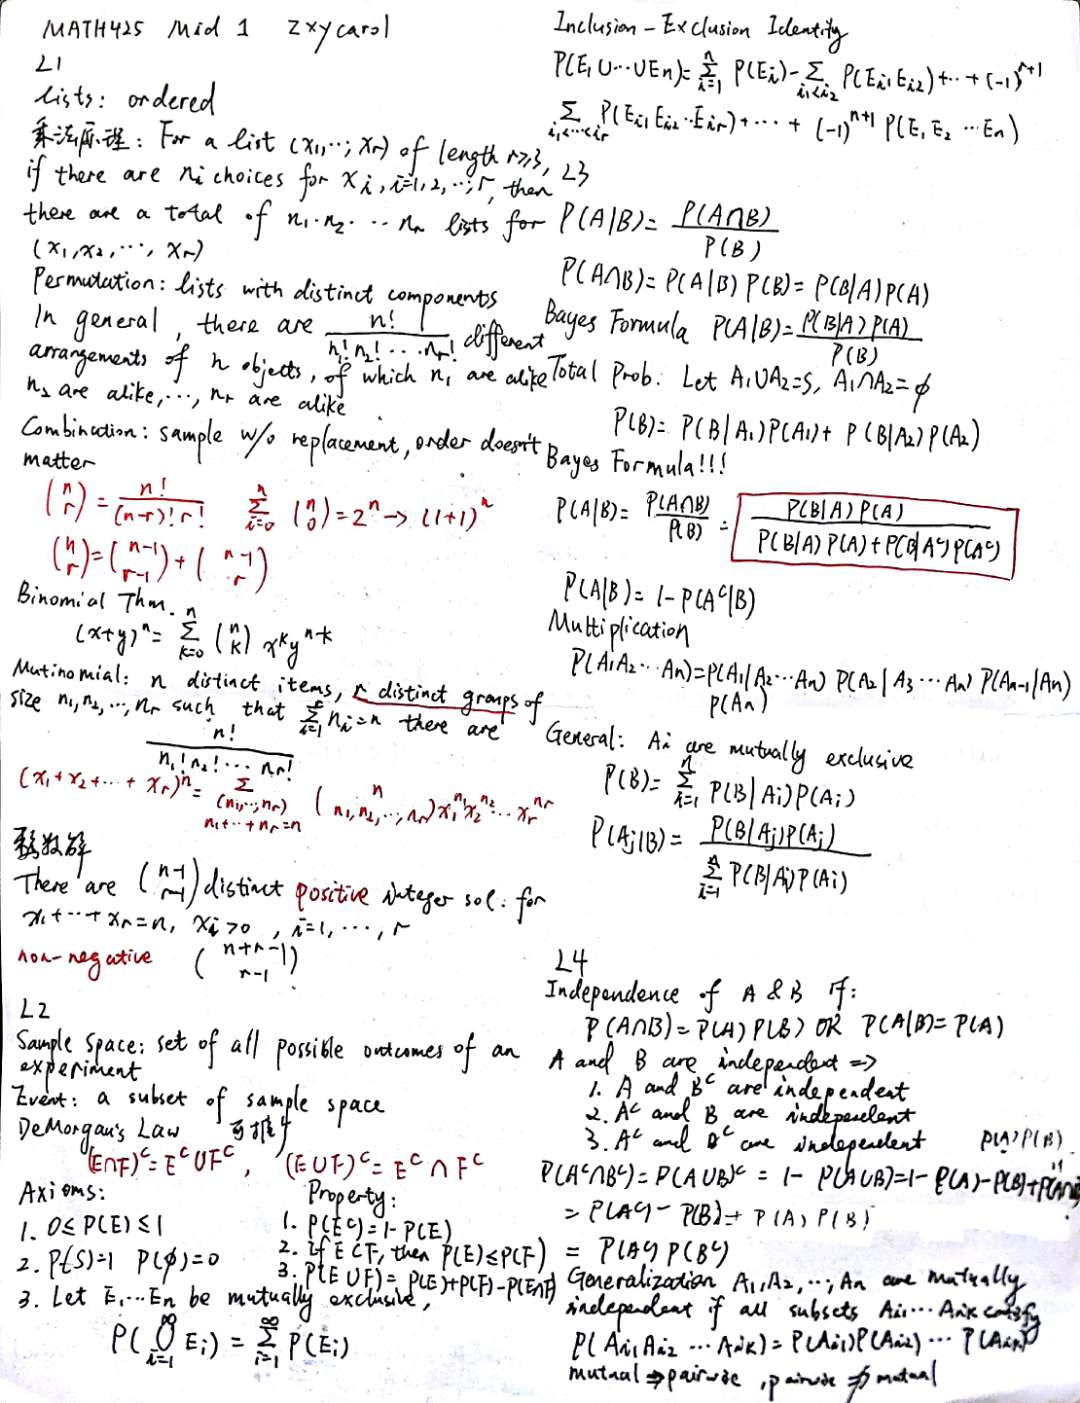 MATH425 Mid 1 zxycarol
L1
lists: ordered
乘法原理: For a list (x₁,…,xᵣ) of length r≥3,
if there are nᵢ choices for xᵢ, i=1,2,…,r, then
there are a total of n₁·n₂·…nᵣ lists for
(x₁,x₂,…,xᵣ)
Permutation: lists with distinct components
In general, there are n!/(n₁!n₂!…nᵣ!) different
arrangements of n objects, of which n₁ are alike
n₂ are alike,…, nᵣ are alike
Combination: sample w/o replacement, order doesn't
matter
(n r) = n!/((n-r)!r!) Σ_{i=0}^{n} (n 0) = 2ⁿ → (1+1)ⁿ
(n r) = (n-1 r-1) + (n-1 r)
Binomial Thm.
(x+y)ⁿ = Σ_{k=0}^{n} (n k) xᵏyⁿ⁻ᵏ
Mutinomial: n distinct items, r distinct groups of
size n₁,n₂,…,nᵣ such that Σ_{i=1}^{r} nᵢ=n there are
n!/(n₁!n₂!…nᵣ!)
(x₁+x₂+…+xᵣ)ⁿ = Σ_{(n₁,…,nᵣ) n₁+…+nᵣ=n} (n n₁,n₂,…,nᵣ) x₁ⁿ¹x₂ⁿ²…xᵣⁿʳ
整数解
There are (n-1 r-1) distinct positive integer sol. for
x₁+…+xᵣ=n, xᵢ>0, i=1,…,r
non-negative (n+r-1 r-1)
L2
Sample Space: set of all possible outcomes of an
experiment
Event: a subset of sample space
DeMorgan's Law 可推广
(E∩F)ᶜ=Eᶜ∪Fᶜ, (E∪F)ᶜ=Eᶜ∩Fᶜ
Axioms:
1. 0≤P(E)≤1
2. P(S)=1 P(ϕ)=0
3. Let E₁…Eₙ be mutually exclusive,
P(∪_{i=1}^{∞} Eᵢ) = Σ_{i=1}^{∞} P(Eᵢ)
Property:
1. P(Eᶜ)=1-P(E)
2. If E⊂F, then P(E)≤P(F)
3. P(E∪F)=P(E)+P(F)-P(E∩F)
Inclusion-Exclusion Identity
P(E₁∪…∪Eₙ)=Σ_{i=1}^{n} P(Eᵢ)-Σ_{i₁<i₂} P(Eᵢ₁Eᵢ₂)+…+(-1)ʳ⁺¹
Σ_{i₁<…<iᵣ} P(Eᵢ₁Eᵢ₂…Eᵢᵣ)+…+(-1)ⁿ⁺¹ P(E₁E₂…Eₙ)
L3
P(A|B)= P(A∩B)/P(B)
P(A∩B)=P(A|B)P(B)=P(B|A)P(A)
Bayes Formula P(A|B)=P(B|A)P(A)/P(B)
Total Prob: Let A₁∪A₂=S, A₁∩A₂=ϕ
P(B)=P(B|A₁)P(A₁)+P(B|A₂)P(A₂)
Bayes Formula!!!
P(A|B)= P(A∩B)/P(B) = P(B|A)P(A)/(P(B|A)P(A)+P(B|Aᶜ)P(Aᶜ))
P(A|B)=1-P(Aᶜ|B)
Multiplication
P(A₁A₂…Aₙ)=P(A₁|A₂…Aₙ)P(A₂|A₃…Aₙ)P(Aₙ₋₁|Aₙ)
P(Aₙ)
General: Aᵢ are mutually exclusive
P(B)=Σ_{i=1}^{n} P(B|Aᵢ)P(Aᵢ)
P(Aⱼ|B)= P(B|Aⱼ)P(Aⱼ)/Σ_{i=1}^{n} P(B|Aᵢ)P(Aᵢ)
L4
Independence of A & B if:
P(A∩B)=P(A)P(B) OR P(A|B)=P(A)
A and B are independent =>
1. A and Bᶜ are independent
2. Aᶜ and B are independent
3. Aᶜ and Bᶜ are independent
P(A)P(B)
P(Aᶜ∩Bᶜ)=P(A∪B)ᶜ = 1-P(A∪B)=1-P(A)-P(B)+P(A∩B)
= P(Aᶜ)-P(B)+P(A)P(B)
= P(Aᶜ)P(Bᶜ)
Generalization A₁,A₂,…,Aₙ are mutually
independent if all subsets Aᵢ₁…Aᵢₖ satisfy
P(Aᵢ₁Aᵢ₂…Aᵢₖ)=P(Aᵢ₁)P(Aᵢ₂)…P(Aᵢₖ)
mutual ⇒ pairwise, pairwise ⇏ mutual